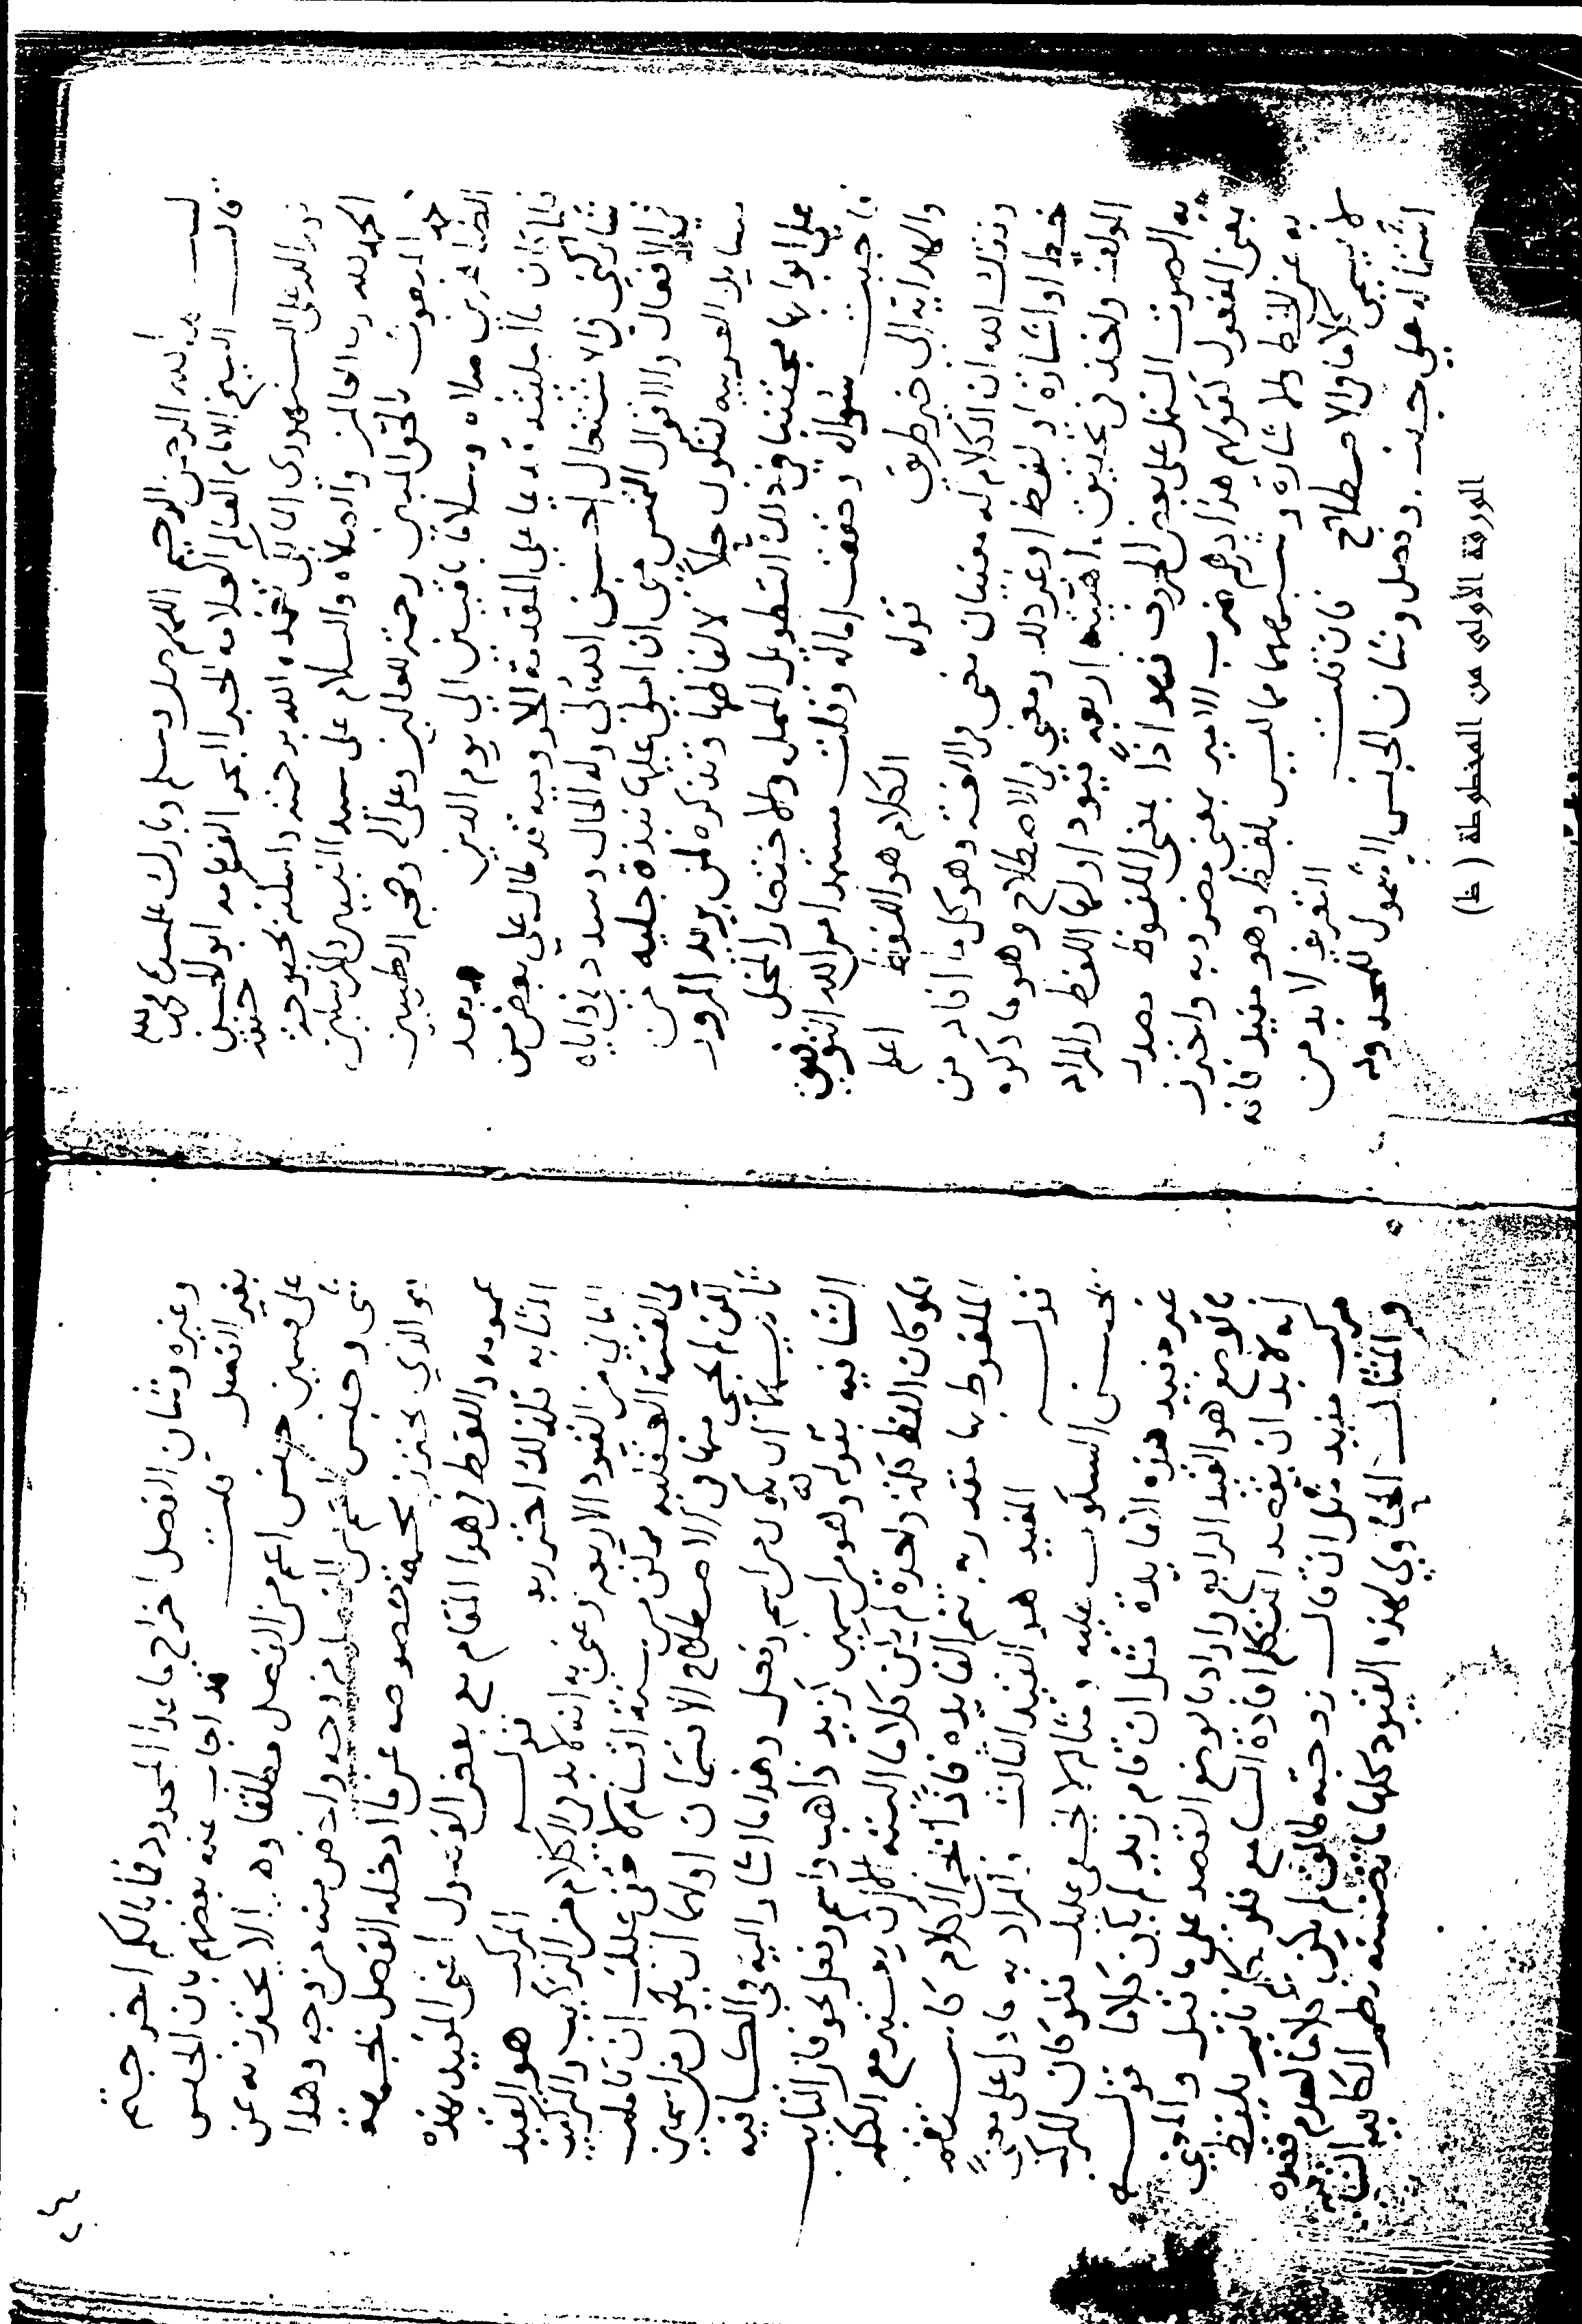 بسم الله الرحمن الرحيم اللهم صل وسلم وبارك على سيدنا محمد
قال الشيخ الامام العالم العلامة الحبر البحر الفهامه ابو الحسن
نور الدين على السنهورى المالكى تغمده الله برحمته واسكنه بحبوحة جنته
الحمد لله رب العالمين والصلاة والسلام على سيد النبيين والمرسلين
المبعوث بالحق المبين رحمة للعالمين وعلى آله وصحبه الطيبين
الطاهرين صلاة وسلاما باقيين الى يوم الدين وبعد
فلما كان ما امليته قديما على المقدمة الاجروميه قد طال على بعض من
شاركنى فى الاشتغال احسن الله لى وله الحال وسدد لى واياه
فى الافعال والاقوال التمس منى ان املى عليها نبذة جليه من
مسايل العربيه لتكون حلاً لالفاظها وتذكره لمن يريد المرور
على ابوابها مجتنبا فى ذلك التطويل الممل والاختصار المخل
فاجبت سؤاله وحققت اماله وقلت مستمدا من الله التوفيق
والهداية الى خير طريق قوله الكلام هو اللفظ اعلم
وفقك الله ان الكلام له معنيان معنى فى اللغة وهو كل ما افاد من
خط او اشارة او لفظ او غير ذلك ومعنى فى الاصطلاح وهو ما ذكره
المولف واخذ فى تحقيق ماهيته اربعة قيود اولها اللفظ والمراد
به الصوت المشتمل على بعض الحروف فهو اذاً بمعنى الملفوظ مصدر
بمعنى المفعول كقولهم هذا درهم ضرب الامير بمعنى مضروبه واحترز
به عن الخط والاشارة وشبههما مما ليس بلفظ وهو مفيد فانه
لا يسمى كلاما فى الاصطلاح فان قلت التعريف لا بد من
اشتماله على جنس وفصل وشان الجنس الشمول للمحدود
الورقة الأولى من المخطوطة (ظ)
وغيره وشان الفصل اخراج ما عدا المحدود فما بالكم اخرجتم
بغير الفصل قلت قد اجاب عنه بعضهم بان الجنس
على قسمين جنس اعم من الفصل مطلقا وهذا لا يحترز به عن
شى وجنس اعم من الفصل من وجه واخص منه من وجه وهذا
هو الذى يحترز بجهة خصوصه عن ما ادخله الفصل بجهة
عمومه واللفظ فى هذا المقام مع بعض الفصول اعنى المفيد بهذه
المثابه فلذلك احترز به قوله المركب هو القيد
الثانى من القيود الاربعه وعنى به انه لا بد فى الكلام من التركيب والتركيب
فى القسمة العقليه ممكن من ستة اقسام لا تخفى عليك ان تاملت
لكن لم يجى منها فى الاصطلاح الا قسمان اولهما ان يكون من اسمين
ثانيهما ان يكون من اسم وفعل وهذا ما اشار اليه فى الكافيه
الشافيه بقوله وهو من اسمين كزيد ذاهب واسم وفعل نحو فاز التايب
فلو كان اللفظ كلمة واحدة لم يكن كلاما البته الا ان يستتر مع الكلمه
الملفوظ بها مقدر به تتم الفايده فاذاً نحو الكلام كاستقم
قوله المفيد هو القيد الثالث والمراد به ما دل على معنى
يحسن السكوت عليه ومثاله لا يخفى عليك فلو كان المركب
غير مفيد هذه الفايدة مثل ان قام زيد لم يكن كلاما قوله
بالوضع هو القيد الرابع واراد بالوضع القصد على ما قيل والمعنى
انه لا بد ان يقصد المتكلم افادة السامع فلو تكلم نائم بلفظ
مركب مفيد مثل ان قال زوجته طالق لم يكن كلاما لعدم قصده
والمثال الحاوى لهذه القيود كلها ما تضمنه نظم الكافيه الشافيه